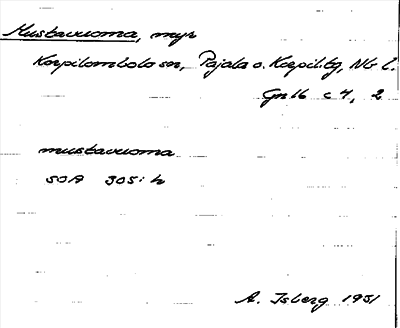 Mustavuoma, myr
Korpilombolo sn, Pajala o. Korpil. tg, Nb l.
Gn 16 c 4, 2
mustavuoma
SOA 305: h
A. Isberg 1951